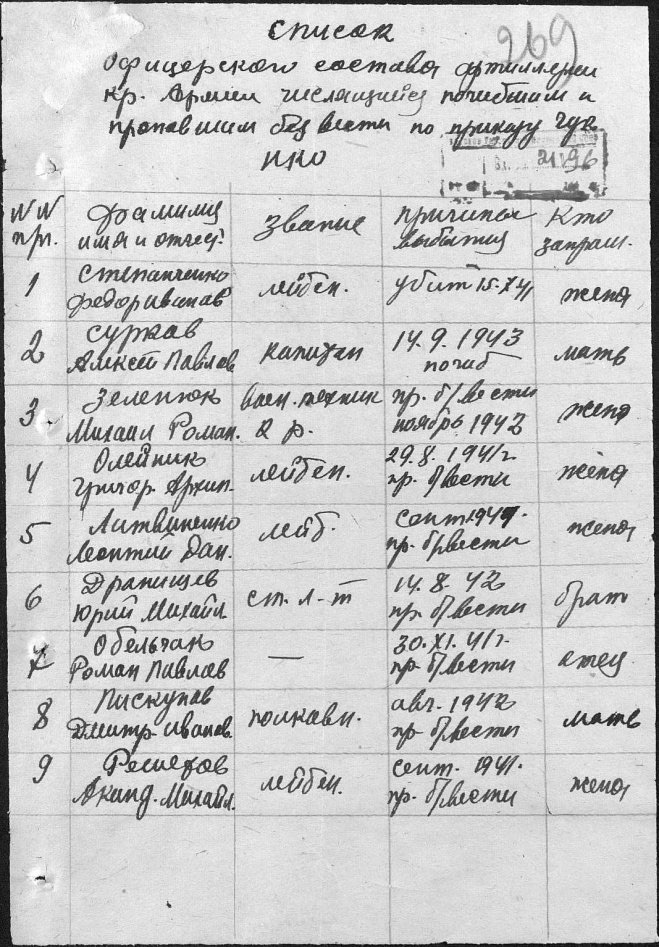 Список
269
офицерского состава артиллерии
кр. Армии числящийся погибшим и
пропавшим без вести по приказу
НКО
21196
NN Фамилия звание причина Кто
п/п. имя и отчест. выбытия запраш.
1 Степанченко лейтен. убит 15.XI 41 жена
Федор Иванов
2 Сурков капитан 14.9.1943 мать
Алексей Павлов погиб
3 Зеленюк воен. техник пр. б/вести жена
Михаил Роман. 2 р. ноябрь 1942
4 Олейник лейтен. 29.8.1941г. жена
Григор. Архип. пр. б/вести
5 Литвиненко лейт. сент 1941. жена
Леонтий Дан. пр. б/вести
6 Драпищев ст. л-т 14.8.42 брат
Юрий Михайл. пр. б/вести
7 Обельчак — 30.XI.41г. отец
Роман Павлов пр. б/вести
8 Пискунов полковн. авг. 1942 мать
Дмитр Иванов. пр. б/вести
9 Решетов лейтен. сент. 1941. жена
Акинд. Михайл. пр. б/вести